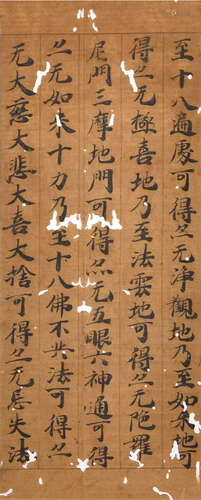 至十八遍處可得亦无淨觀地乃至如来地可
得亦无極喜地乃至法雲地可得亦无陁羅
尼門三摩地門可得亦无五眼六神通可得
亦无如来十力乃至十八佛不共法可得亦
无大慈大悲大喜大捨可得亦无忘失法